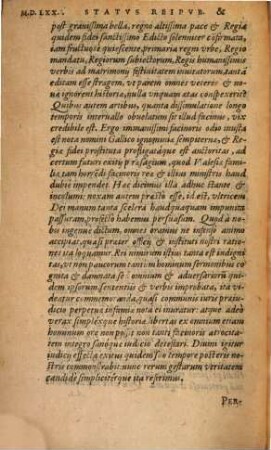 M.D.LXX. STATVS REIPVB. &
post grauissima bella, regno altissima pace & Regia
quidem fidei sanctissimo Edicto solenniter cōfirmata,
iam suauiter quiescente, primaria regni vrbe, Regio
mandatu, Regiorum subiectorum, Regis humanissimis
verbis ad matrimonij festiuitatem inuitatorum, tanta
editam esse stragem, vt parem omnes veteres & no
ua ignorent historiæ, nulla vnquam ætas conspexerit.
Quibus autem artibus, quanta dissimulatione longo
temporis interuallo obuelatum sit illud facinus, vix
credibile est. Ergo immanissimi facinoris odio inusta
est nota nomini Gallico in quouis sempiterna, & Re-
giæ fidei prostituta profligataque est auctoritas, ac
certum futuri exitij præsagium, quod Valesia fami-
lia, tam horrēdi facinoris reo & illius ministris haud
dubiè impendet. Hoc dicimus illa adhuc stante &
incolumi: noxam autem præstò esse, id est, vltricem
Dei manum tanta scelera haud quaquam impunita
passuram, profectò habemus persuasum. Quod à no-
bis ingenuè dictum, omnes oramus ne infenso animo
accipiat, quasi præter officij & instituti nostri ratio-
nes ita loquamur. Rei nimirum istius tanta est indigni-
tas, vt non paucorum tantùm hominum sermonibus co-
gnita & damnata sit: omnium & aduersariorum qui-
dem ipsorum sententiis & verbis improbata, ita vi-
deatur cōmemorāda, quasi communis iuris præiu-
dicio perpetua infamiæ nota ei inuratur: atque adeò
verax simplexque historiæ libertas ex omnium etiam
hominum ore non possit non tanti facinoris atrocita-
tem integro sanoque iudicio detestari. Diuini igitur
iudicij effecta exitus quidem suo tempore posteris no-
stris commonstrabit: nunc rerum gestarum veritatem
candidè simpliciterque ita referimus.
PER-